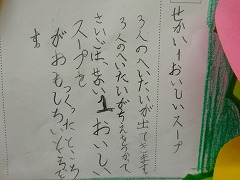 せかい1おいしいスープ
3人のへいたいが出てきます。
3人のへいたいがちえをつかって、
さいごは、せかい1おいしい
スープを
つくったところ
がおもしろいところで
す。